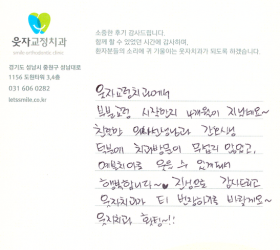 웃자교정치과
소중한 후기 감사드립니다.
함께 할 수 있었던 시간에 감사하며,
환자분들의 소리에 귀 기울이는 웃자치과가 되도록 하겠습니다.
경기도 성남시 중원구 성남대로
1156 도원타워 3,4층
031 606 0282
letssmile.co.kr
웃자교정치과에서
부분교정 시작한지 4개월이 지났네요~
친절한 의사선생님과 간호사샘
덕분에 치과방문이 무섭지 않았고,
예쁜치아를 얻을 수 있게돼서
행복합니다~♥ 진심으로 감사드리고
웃자치과가 더 번창하기를 바랄게요~
웃자치과 화팅~!!